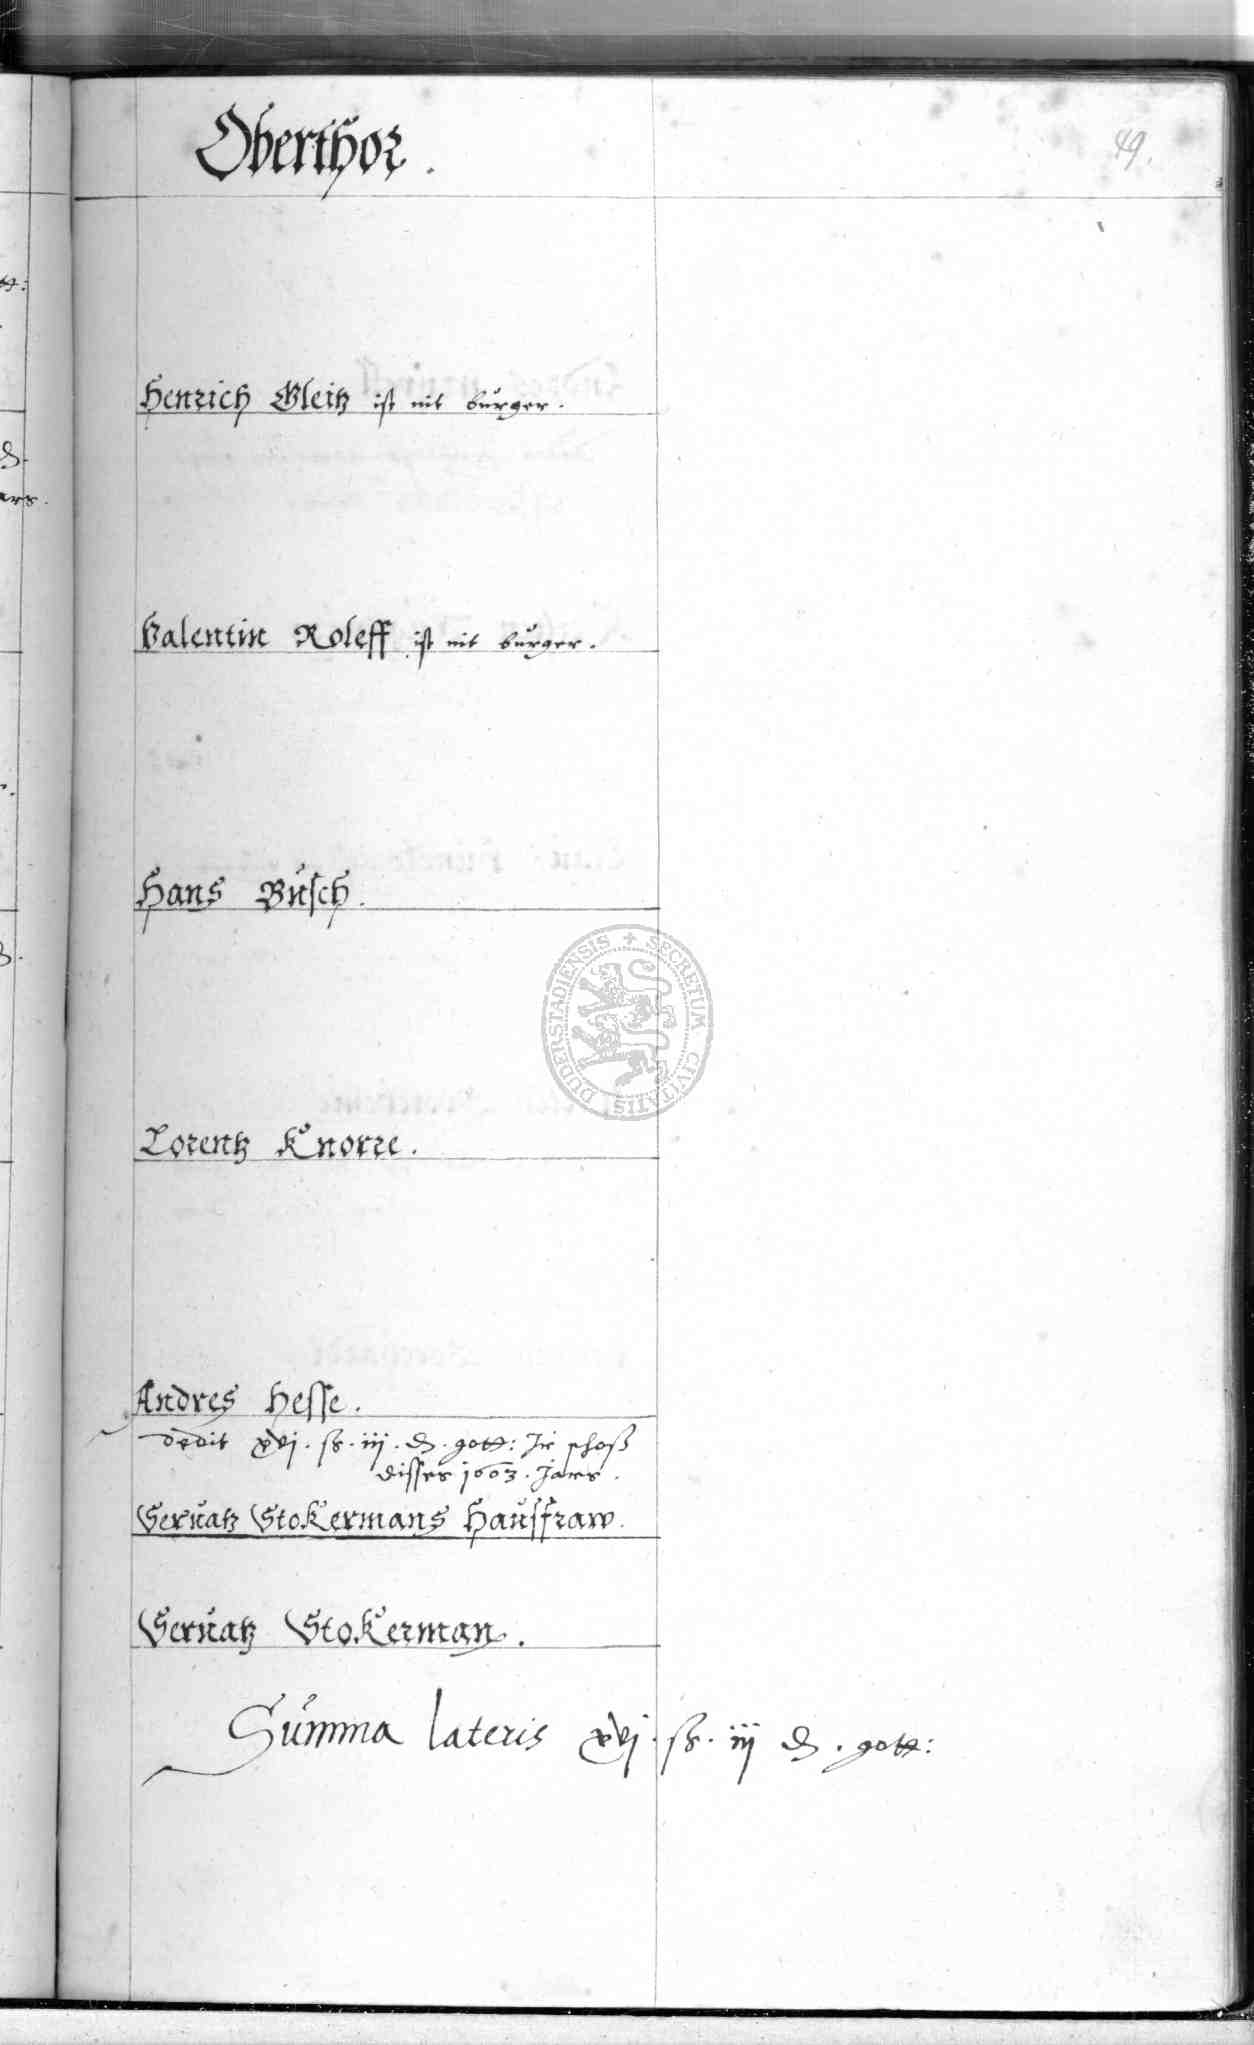 Oberthor.
49.
Henrich Gleitz ist nit burger.
Valentin Roleff ist nit burger.
Hans Busch.
Lorentz Knorre.
Andres Hesse.
dedit xvj. ß. iij. d. gott: Ir schoß
disses 1603. Jars.
Seruatz Stokermans Haussfraw.
Seruatz Stokerman.
Summa lateris xvj. ß. iij d. gott:
SECRETUM CIVITATIS DUDERSTADIENSIS